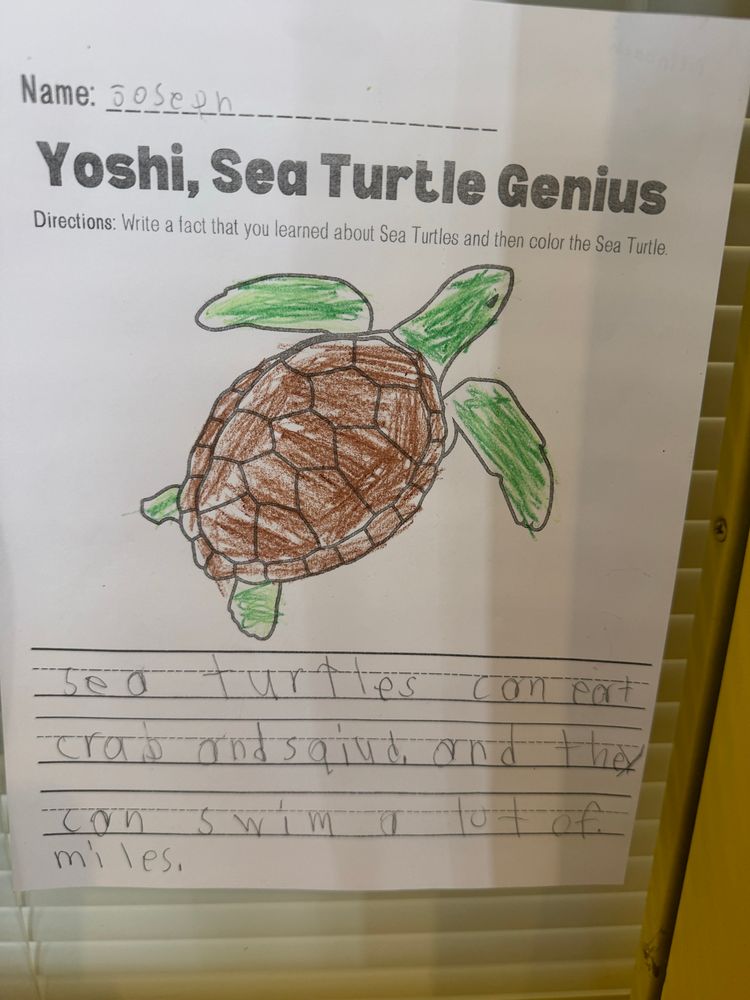 Name: Joseph
Yoshi, Sea Turtle Genius
Directions: Write a fact that you learned about Sea Turtles and then color the Sea Turtle.
sea turtles can eat
crab and sqiud. and they
can swim a lot of.
miles.